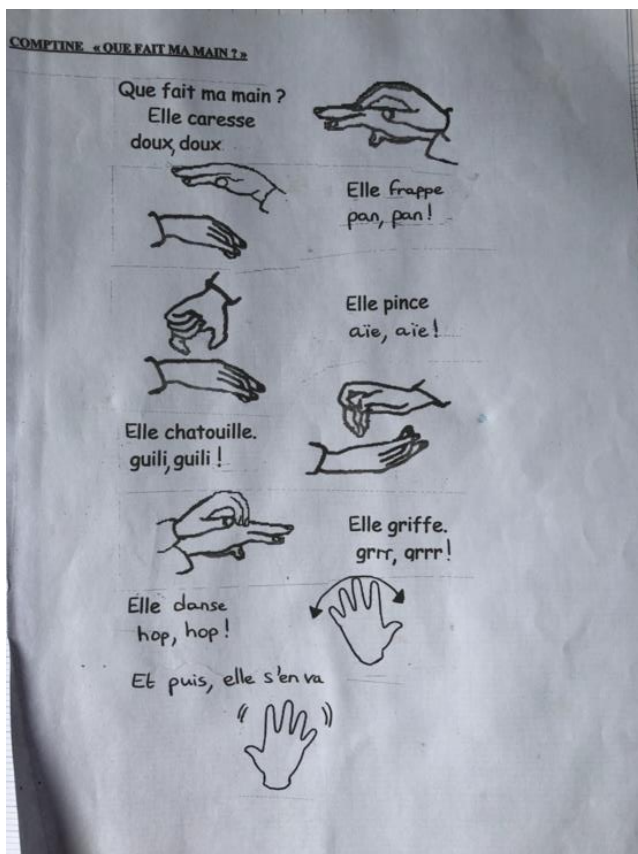 COMPTINE « QUE FAIT MA MAIN ? »
Que fait ma main ?
Elle caresse
doux, doux
Elle frappe
pan, pan !
Elle pince
aïe, aïe !
Elle chatouille.
guili, guili !
Elle griffe.
grrr, grrr !
Elle danse
hop, hop !
Et puis, elle s'en va